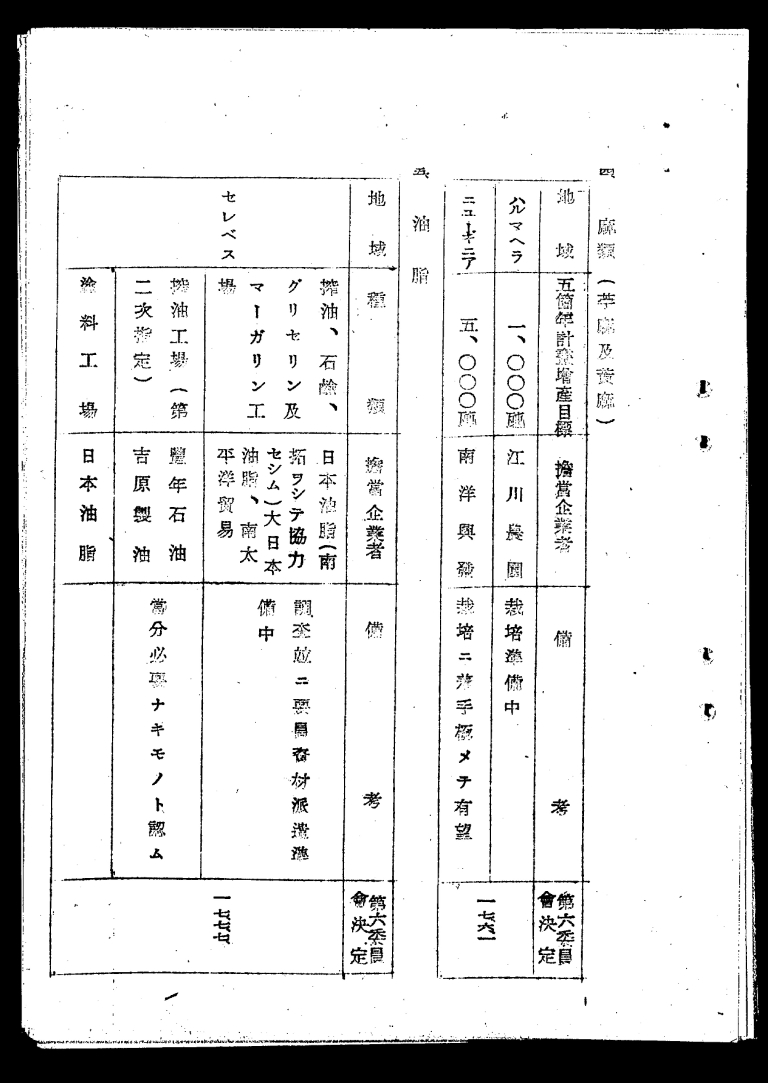 四 麻類(苧麻及黄麻)
地域
五箇年計畫增産目標
擔當企業者
備考
第六委員
會決定
ハルマヘラ
一、〇〇〇瓲
江川農園
栽培準備中
ニューギニア
五、〇〇〇瓲
南洋興發
栽培ニ著手極メテ有望
一七六一
五 油脂
地域
種類
擔當企業者
備考
第六委員
會決定
セレベス
搾油、石鹸、
グリセリン及
マーガリン工
場
日本油脂(南
拓ヲシテ協力
セシム)大日本
油脂、南太
平洋貿易
調査並ニ要員資材派遣準
備中
搾油工場(第
二次指定)
豐年石油
吉原製油
當分必要ナキモノト認ム
塗料工場
日本油脂
一七七七